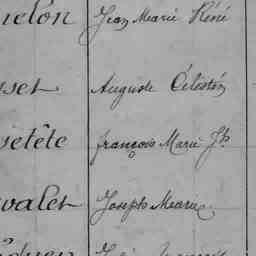 melon Jean Marie Réné
sset Auguste Célestin
vetête françois Marie Jh
valet Joseph Marie